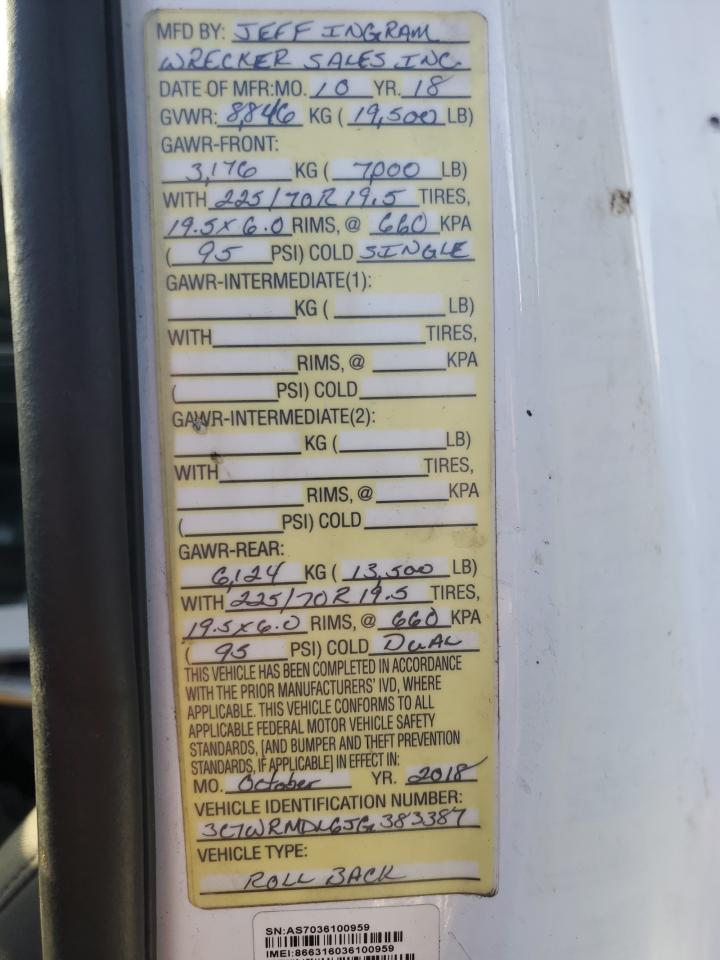 MFD BY: JEFF INGRAM
WRECKER SALES INC
DATE OF MFR:MO. 10 YR. 18
GVWR: 8,846 KG ( 19,500 LB)
GAWR-FRONT:
3,176 KG ( 7,000 LB)
WITH 225/70R 19.5 TIRES,
19.5 x 6.0 RIMS, @ 660 KPA
( 95 PSI) COLD SINGLE
GAWR-INTERMEDIATE(1):
KG ( LB)
WITH TIRES,
RIMS, @ KPA
( PSI) COLD
GAWR-INTERMEDIATE(2):
KG ( LB)
WITH TIRES,
RIMS, @ KPA
( PSI) COLD
GAWR-REAR:
6,124 KG ( 13,500 LB)
WITH 225/70R 19.5 TIRES,
19.5 x 6.0 RIMS, @ 660 KPA
( 95 PSI) COLD DUAL
THIS VEHICLE HAS BEEN COMPLETED IN ACCORDANCE
WITH THE PRIOR MANUFACTURERS' IVD, WHERE
APPLICABLE. THIS VEHICLE CONFORMS TO ALL
APPLICABLE FEDERAL MOTOR VEHICLE SAFETY
STANDARDS, [AND BUMPER AND THEFT PREVENTION
STANDARDS, IF APPLICABLE] IN EFFECT IN:
MO. October YR. 2018
VEHICLE IDENTIFICATION NUMBER:
3C7WRMDL6JG383387
VEHICLE TYPE:
ROLL BACK
SN:AS7036100959
IMEI:866316036100959